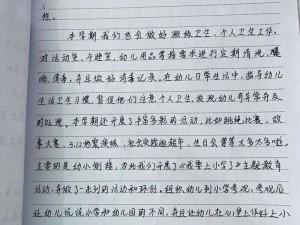 性。
本学期我们也会做好班级卫生、个人卫生工作,
对活动室、午睡室、幼儿用品等按要求进行定期清洗、曝
晒、消毒,并且做好消毒记录。在幼儿日常生活中,指导幼儿
生活卫生习惯,督促他们注意个人卫生,发现幼儿有异常并及
时处理。本学期还开展了丰富多彩的活动,比如跳绳比赛、故
事大赛、5.12地震演练、生日会等等太多太多啦。
主要的是幼小衔接,为此我们开展了《我要上小学了》主题教育
活动,并做了一系列的活动和环创。组织幼儿到小学参观,参观后
让幼儿说说小学和幼儿园的不同,并且让幼儿在心里上作好上小